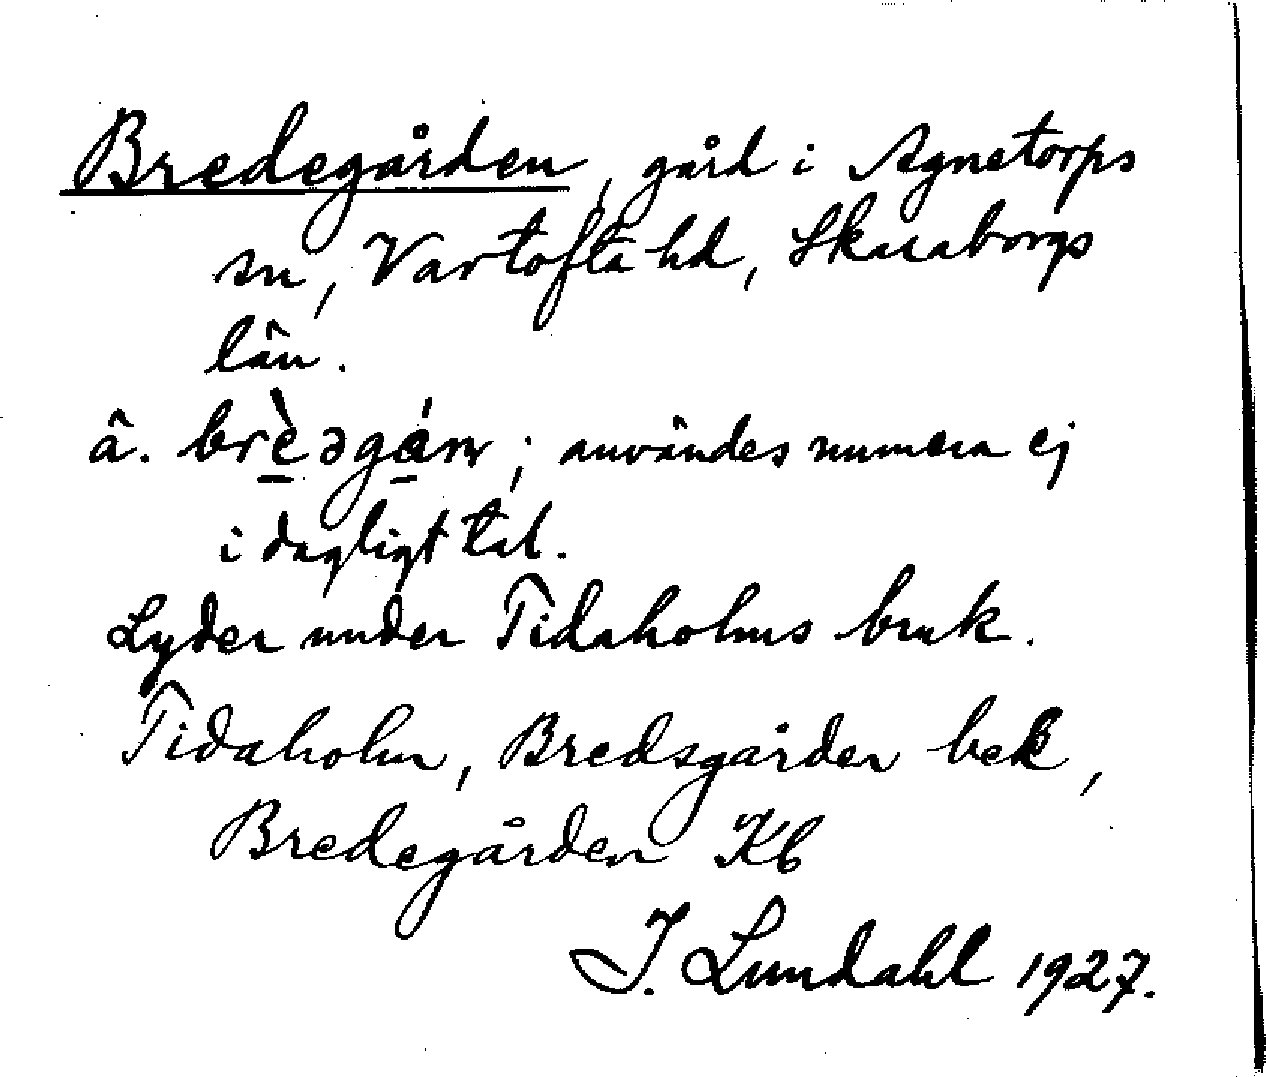 Bredegården, gård i Agnetorps
sn, Vartofta hd, Skaraborgs
län.
ä. brè̱əgá̱ɳ; användes numera ej
i dagligt tal.
Lyder under Tidaholms bruk.
Tidaholm, Bredsgården bek,
Bredegården Kb
I. Lundahl 1927.